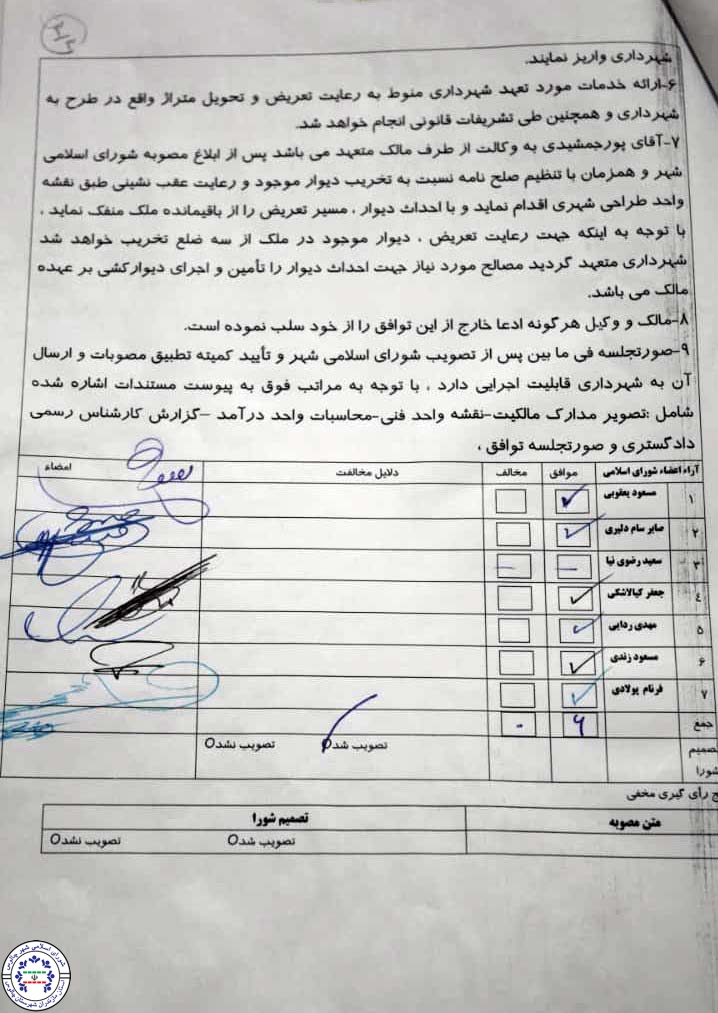 ۳/۳
شهرداری واریز نمایند.
۶-ارائه خدمات مورد تعهد شهرداری منوط به رعایت تعریض و تحویل متراژ واقع در طرح به
شهرداری و همچنین طی تشریفات قانونی انجام خواهد شد.
۷-آقای پورجمشیدی به وکالت از طرف مالک متعهد می باشد پس از ابلاغ مصوبه شورای اسلامی
شهر و همزمان با تنظیم صلح نامه نسبت به تخریب دیوار موجود و رعایت عقب نشینی طبق نقشه
واحد طراحی شهری اقدام نماید و با احداث دیوار ، مسیر تعریض را از باقیمانده ملک منفک نماید ،
با توجه به اینکه جهت رعایت تعریض ، دیوار موجود در ملک از سه ضلع تخریب خواهد شد
شهرداری متعهد گردید مصالح مورد نیاز جهت احداث دیوار را تأمین و اجرای دیوارکشی بر عهده
مالک می باشد.
۸-مالک و وکیل هر گونه ادعا خارج از این توافق را از خود سلب نموده است.
۹-صورتجلسه فی ما بین پس از تصویب شورای اسلامی شهر و تأیید کمیته تطبیق مصوبات و ارسال
آن به شهرداری قابلیت اجرایی دارد ، با توجه به مراتب فوق به پیوست مستندات اشاره شده
شامل :تصویر مدارک مالکیت-نقشه واحد فنی-محاسبات واحد درآمد –گزارش کارشناس رسمی
دادگستری و صورتجلسه توافق ،
آراء اعضاء شورای اسلامی موافق مخالف دلایل مخالفت امضاء
۱ مسعود یعقوبی
۲ صابر سام دلیری
۳ سعید رضوی نیا
۴ جعفر کیالاشکی
۵ مهدی ردایی
۶ مسعود زندی
۷ فرنام پولادی
جمع ۶ -
تصمیم شورا تصویب شد تصویب نشد
رأی گیری مخفی
متن مصوبه تصمیم شورا
تصویب شد تصویب نشد
شورای اسلامی شهر چالوس
استان مازندران شهرستان چالوس